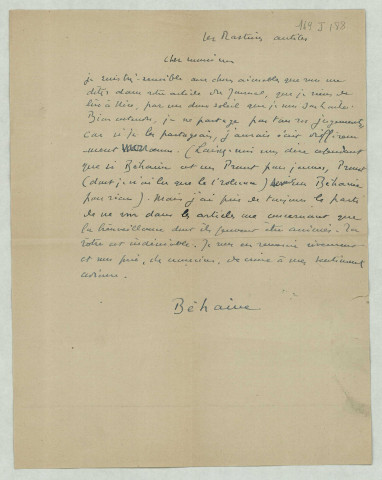 169 J 188
Les Bastiers antibes
Cher monsieur
je suis très sensible aux choses aimables que vous me
dites dans votre article du Journal, que je viens de
lire à Nice, par un doux soleil que je vous souhaite.
Bien entendu, je ne partage pas tous vos jugements
car si je les partageais, j'aurais écrit différem
ment. (Laissez-moi vous dire cependant
que si Béhaine est un Proust pour jeunes, Proust
(dont je n'ai lu que le 1er volume) est un Béhaine
pour rien). Mais j'ai pris toujours le parti
de ne voir dans les articles me concernant que
la bienveillance dont ils peuvent être animés. La
vôtre est indéniable. Je vous en remercie vivement
et vous prie, cher monsieur, de croire à mes sentiments
Béhaine